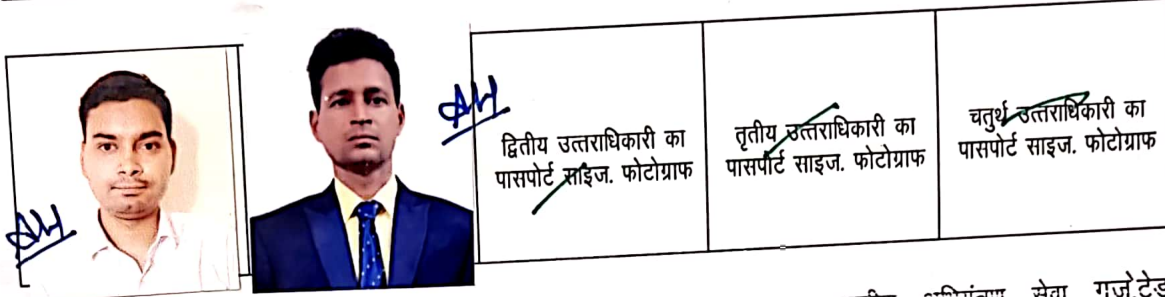 द्वितीय उत्तराधिकारी का
पासपोर्ट साइज. फोटोग्राफ
तृतीय उत्तराधिकारी का
पासपोर्ट साइज. फोटोग्राफ
चतुर्थ उत्तराधिकारी का
पासपोर्ट साइज. फोटोग्राफ
सेवा गजेटेड